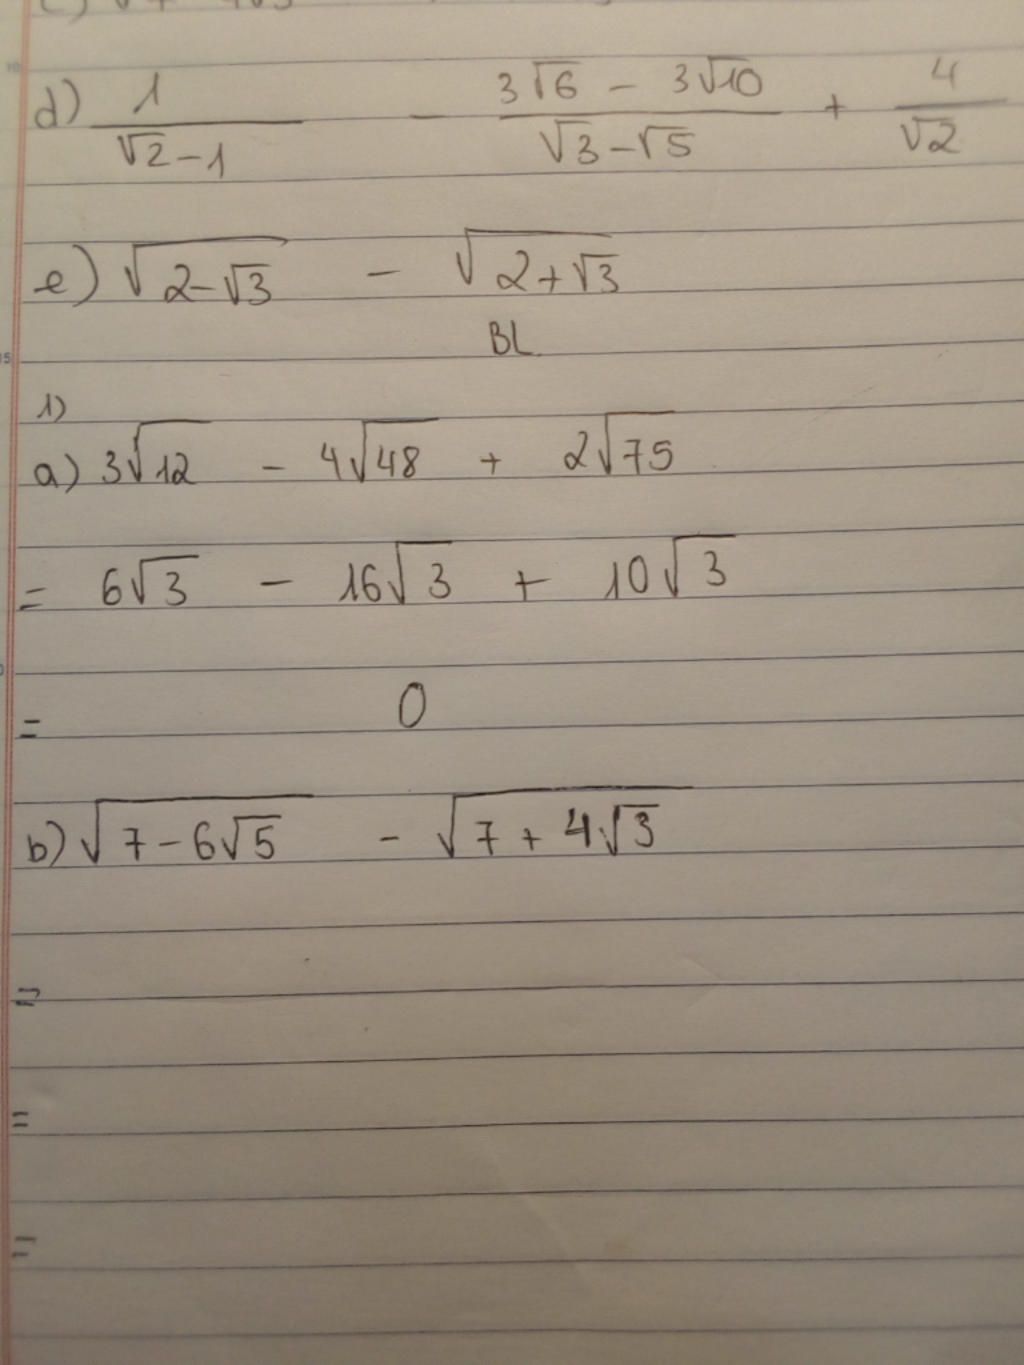 d) 1/(√2-1) - (3√6 - 3√10)/(√3-√5) + 4/√2
e) √(2-√3) - √(2+√3)
BL
1)
a) 3√12 - 4√48 + 2√75
= 6√3 - 16√3 + 10√3
= 0
b) √(7-6√5) - √(7+4√3)
=
=
=